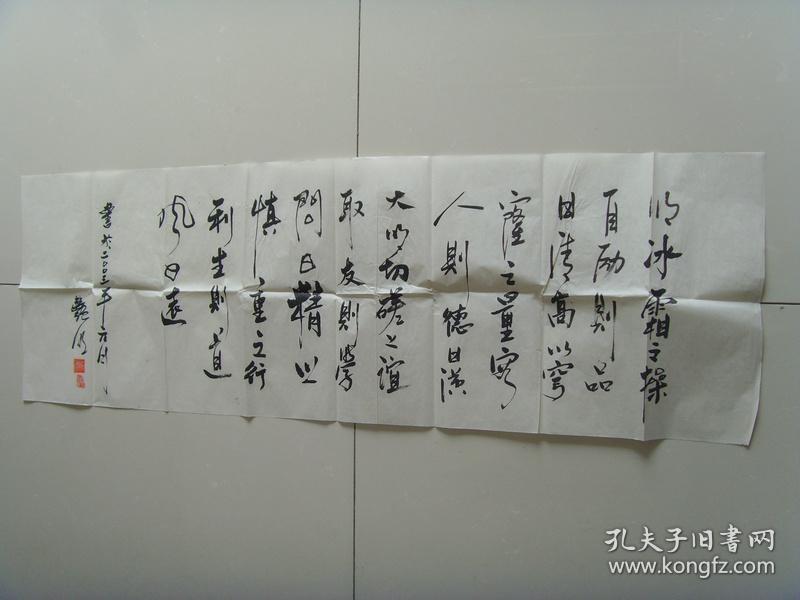 以冰霜之操
自励則品
日清高以穹
窿之量容
人則德日廣
大以切磋之誼
取友則學
問日精以
慎重之行
利生則道
風日遠
書於二〇〇三年六月
孔夫子旧书网
www.kongfz.com